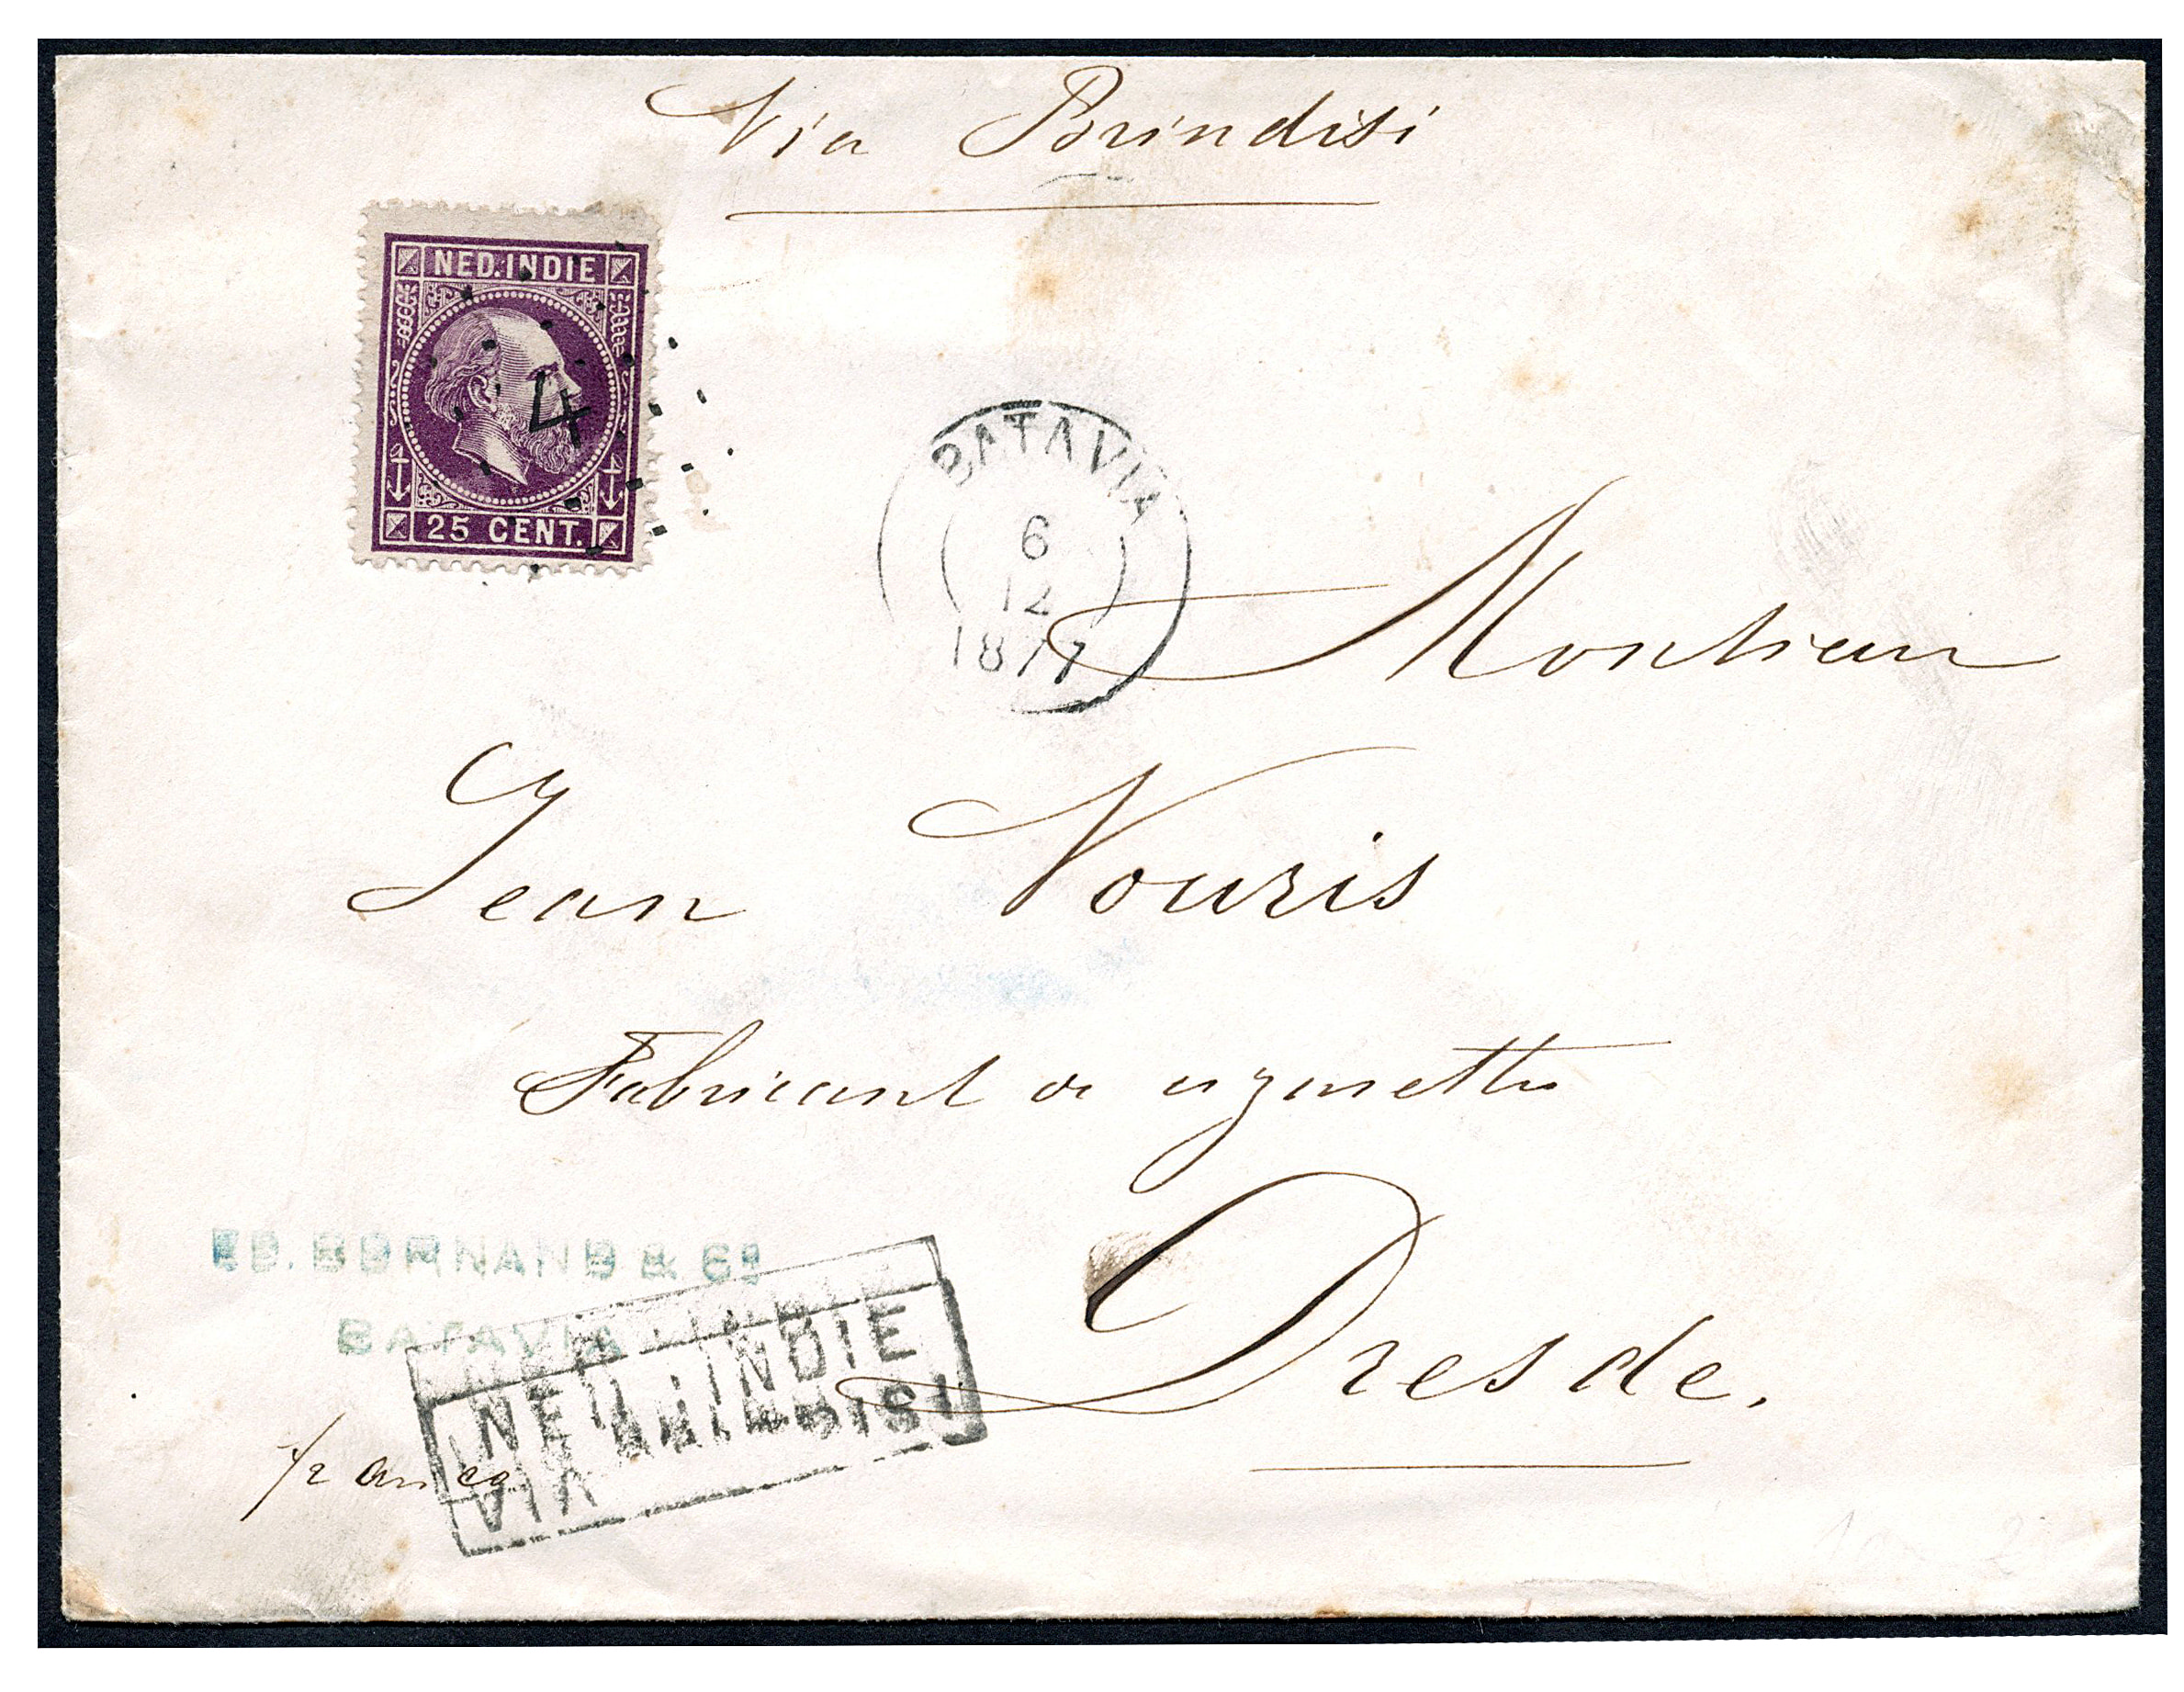 Via Brindisi
NED. INDIE
4
25 CENT.
BATAVIA
6
12
1877
Monsieur
Jean Vouris
Fabricant de cigarettes
Dresde.
ED. BORNAND & Co
BATAVIA
NED. INDIE
VIA BRINDISI
franco